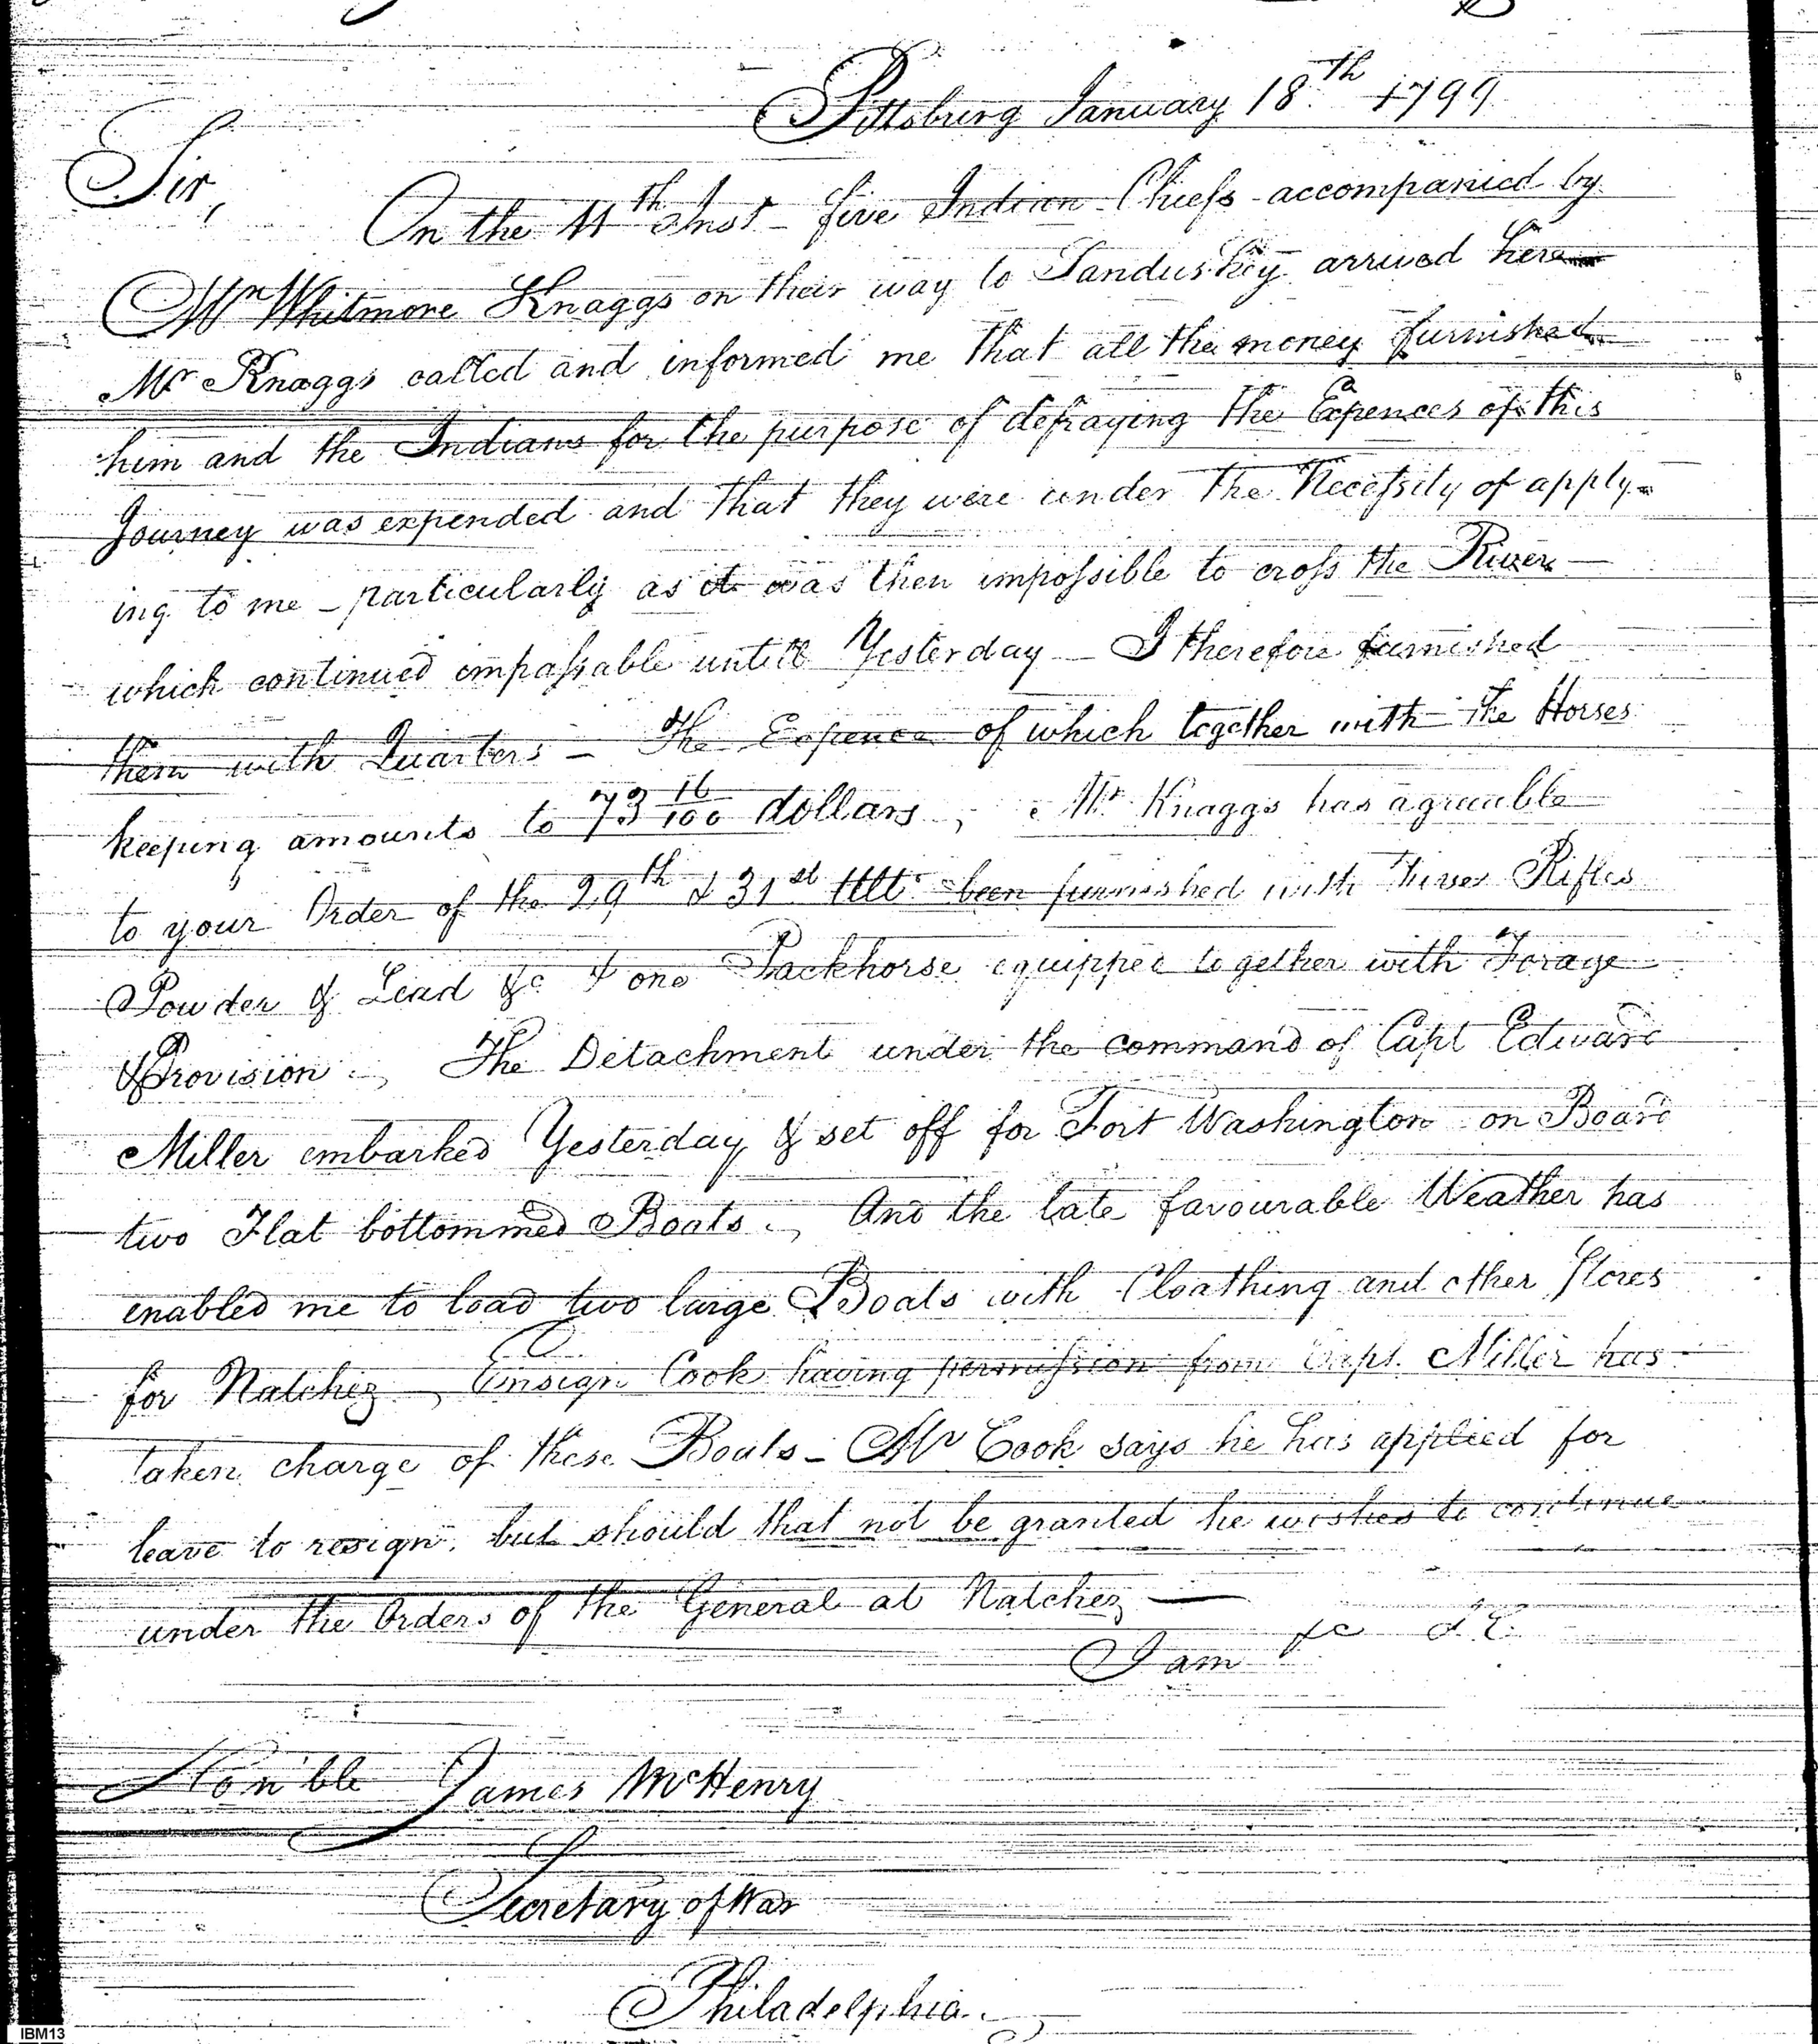 Pittsburg January 18th 1799
Sir,
On the 11th Inst - five Indian Chiefs accompanied by
Mr Whitmore Knaggs on their way to Sanduskey arrived here
Mr Knaggs called and informed me that all the money furnished
him and the Indians for the purpose of defraying the Expences of this
Journey was expended and that they were under the Necessity of apply-
ing to me - particularly as it was then impossible to cross the River
which continued impassable untill Yesterday - I therefore furnished
them with Quarters - The Expence of which together with the Horses
keeping amounts to 73 16/100 dollars, Mr Knaggs has agreeable
to your Order of the 29th & 31st Ulto been furnished with Rifles
Powder & Lead &c & one Packhorse equipped together with Forage
& Provision. The Detachment under the command of Capt Edward
Miller embarked Yesterday & set off for Fort Washington on Board
two Flat bottommed Boats. And the late favourable Weather has
enabled me to load two large Boats with Cloathing and other Stores
for Natchez, Ensign Cook having permission from Capt. Miller has
taken charge of these Boats - Mr Cook says he has applied for
leave to resign, but should that not be granted he wishes to continue
under the Orders of the General at Natchez —
I am &c &c
Hon'ble James McHenry
Secretary of War
Philadelphia.
IBM13